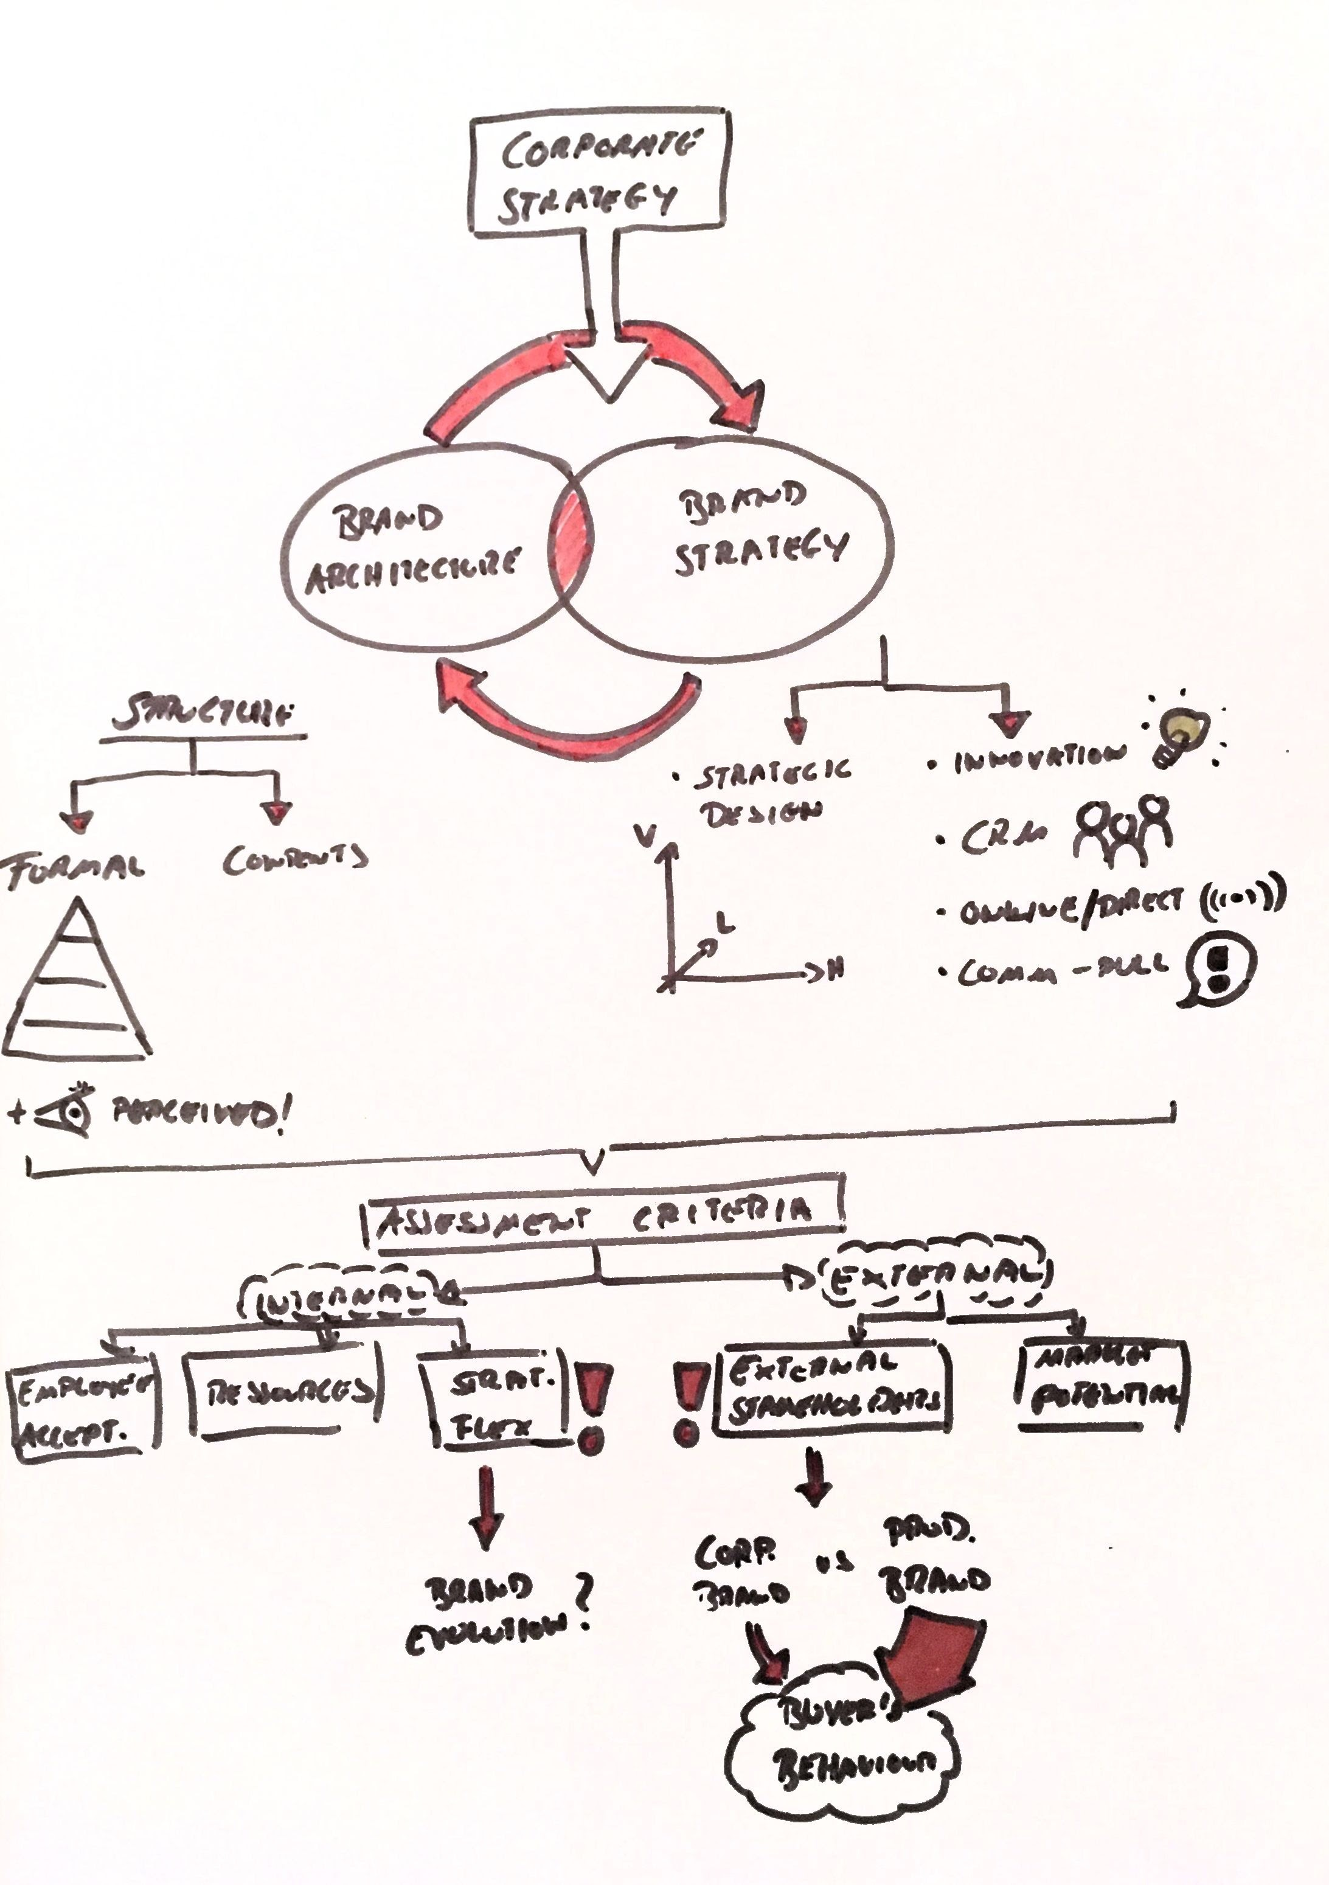 CORPORATE
STRATEGY
BRAND
ARCHITECTURE
BRAND
STRATEGY
STRUCTURE
FORMAL
CONTENTS
+ PERCEIVED!
• STRATEGIC
DESIGN
V
L
H
• INNOVATION
• CRM
• ONLINE/DIRECT
• COMM - PULL
ASSESSMENT CRITERIA
INTERNAL
EXTERNAL
EMPLOYEE
ACCEPT.
RESSOURCES
STRAT.
FLEX
!
!
EXTERNAL
STAKEHOLDERS
MARKET
POTENTIAL
BRAND
EVOLUTION?
CORP.
BRAND
VS
PROD.
BRAND
BUYER'S
BEHAVIOUR